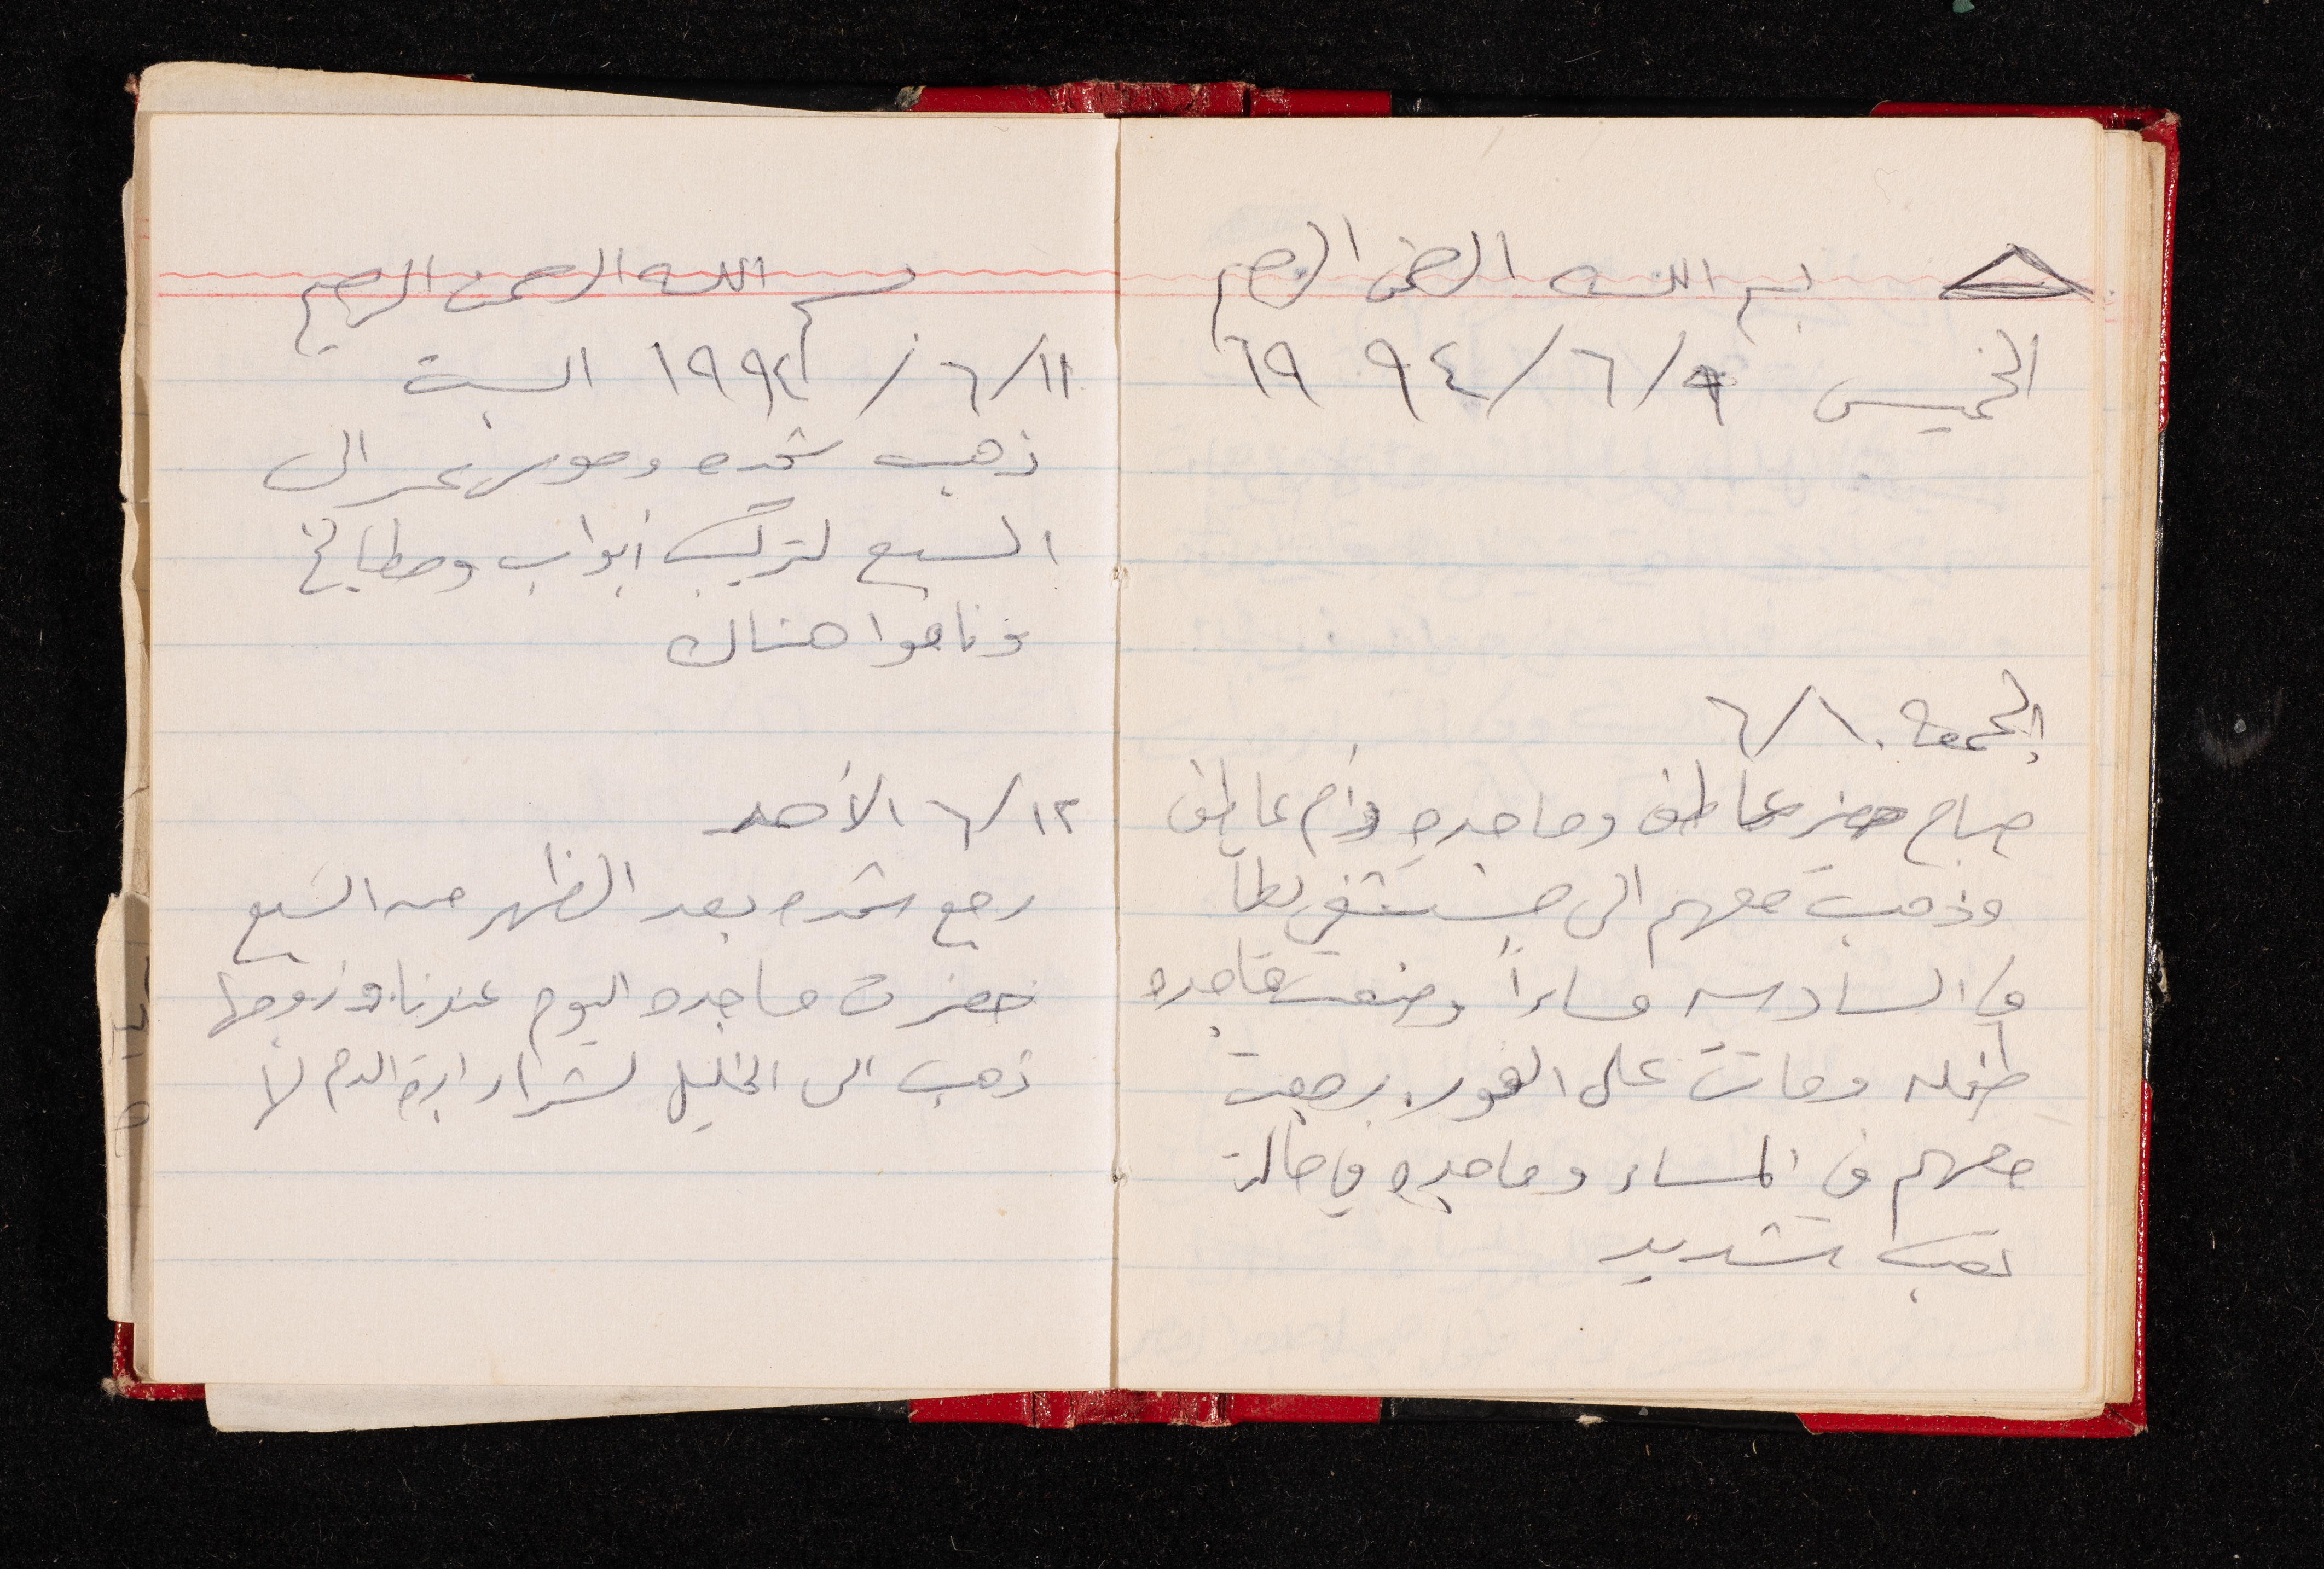 بسم الله الرحمن الرحيم
الخميس ٩/٦/١٩٩٤
الجمعة ١٠/٦
صباح حضر عاطف وماجده وأم عاطف
وذهبت معهم الى مستشفى يطا
في السادسه مساءاً وضعت ماجده
طفله وماتت على الفور. رجعت
معهم في المساء وماجده في حالة
تعب شديد
بسم الله الرحمن الرحيم
١١/٦/١٩٩٤ السبت
ذهب شحده وموسى عمر الى
السبع لتركيب أبواب ومطابخ
وناموا هناك
١٢/٦ الأحد
رجع شحده بعد الظهر من السبع
حضرت ماجده اليوم عندنا وزوجها
ذهب الى الخليل لشراء ابرة الدم لها